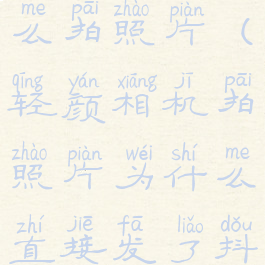 me pāi zhào piàn
么拍照片（
qīng yán xiāng jī pāi
轻颜相机拍
zhào piàn wéi shí me
照片为什么
zhí jiē fā liǎo dǒu
直接发了抖